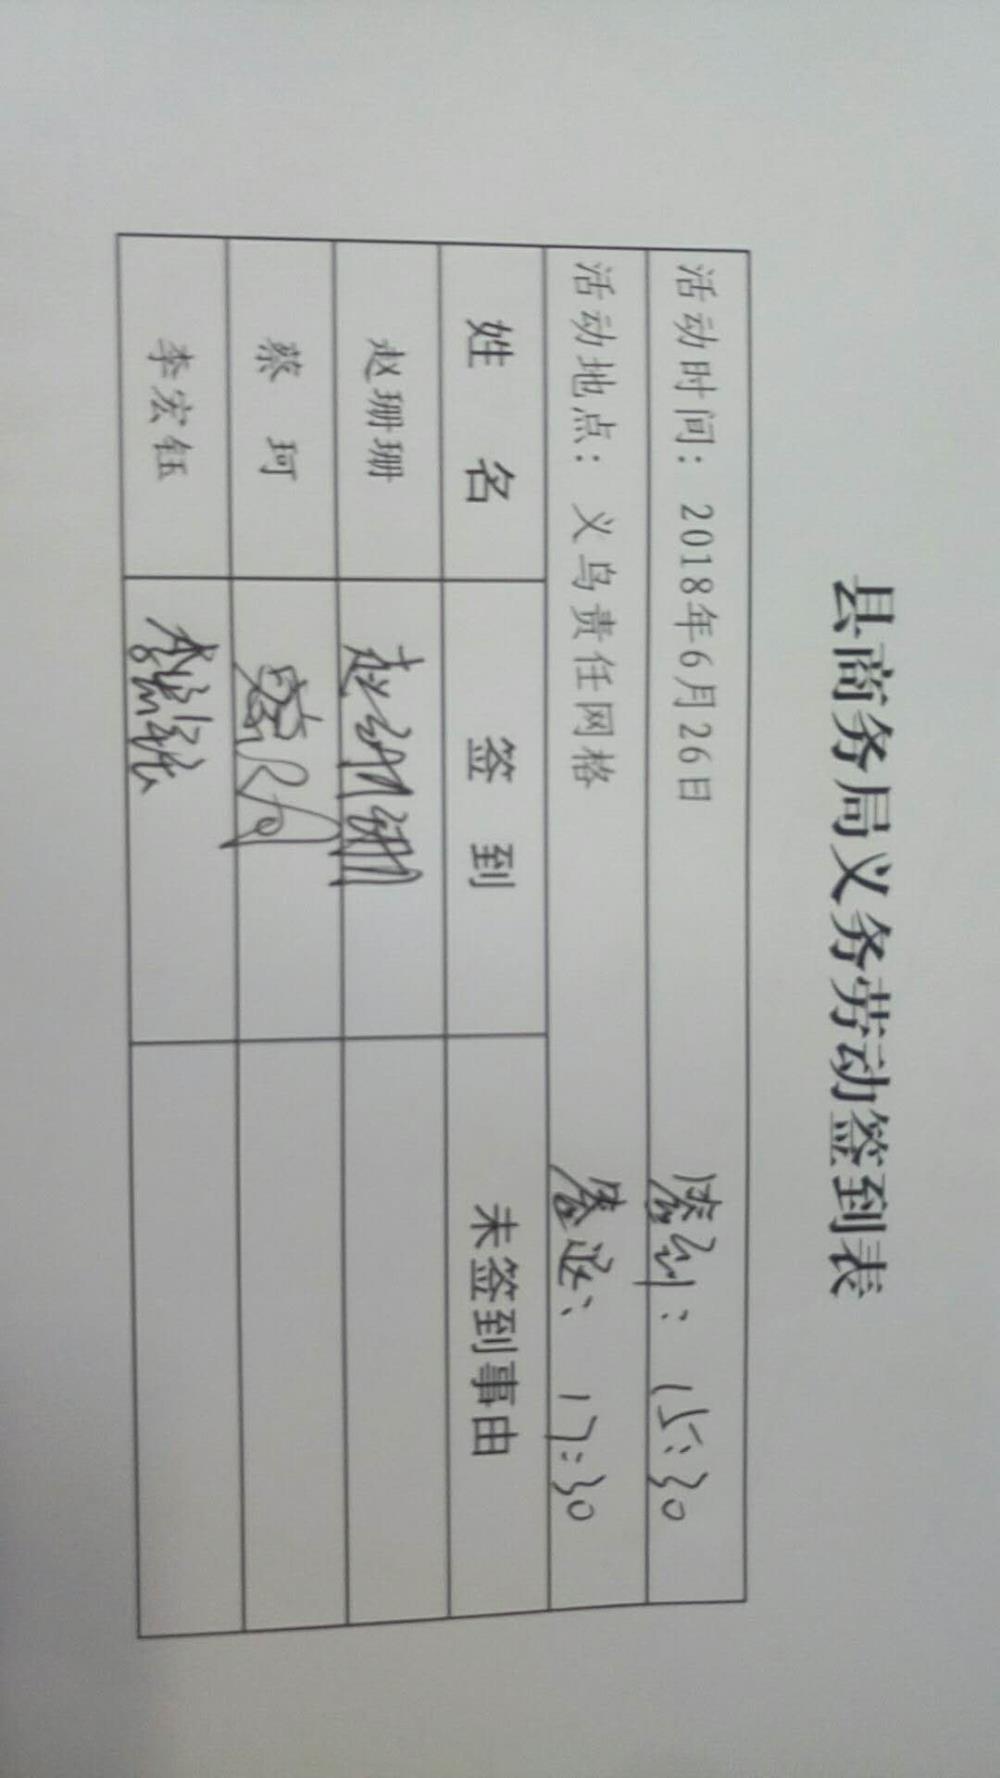 县商务局义务劳动签到表
活动时间：2018年6月26日 签到：15:30
活动地点：义乌责任网格 签退：17:30
姓 名 签 到 未签到事由
赵珊珊 赵珊珊
蔡 珂 蔡珂
李宏钰 李宏钰